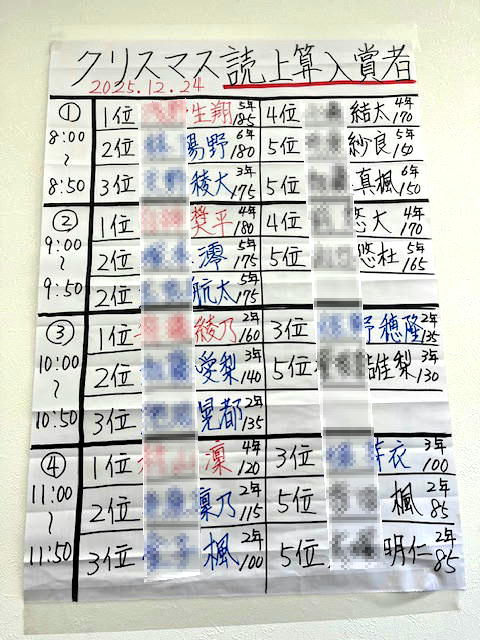 クリスマス読上算入賞者
2025.12.24
① 8:00～8:50
1位 生翔 5年 185
2位 陽野 6年 180
3位 稜大 3年 175
4位 結太 4年 170
5位 紗良 5年 150
5位 真楓 6年 150
② 9:00～9:50
1位 奨平 4年 180
2位 澪 5年 175
2位 航太 5年 175
4位 悠大 4年 170
5位 悠杜 5年 165
③ 10:00～10:50
1位 綾乃 2年 160
2位 愛梨 3年 140
3位 晃都 2年 135
3位 野穂隆 2年 135
5位 梨 3年 130
④ 11:00～11:50
1位 凛 4年 120
2位 凛乃 2年 115
3位 楓 2年 100
3位 芽衣 3年 100
5位 楓 2年 85
5位 明仁 2年 85